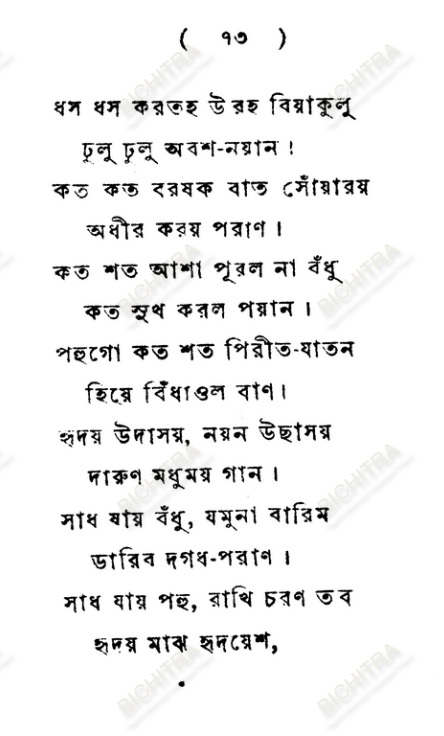 ( ১৩ )
ধস ধস করতহ উরহ বিয়াকুলু
ঢুলু ঢুলু অবশ-নয়ান !
কত কত বরষক বাত সোঁয়ারয়
অধীর করয় পরাণ ।
কত শত আশা পূরল না বঁধু
কত সুখ করল পয়ান ।
পহুগো কত শত পিরীত-যাতন
হিয়ে বিঁধাওল বাণ ।
হৃদয় উদাসয়, নয়ন উছাসয়
দারুণ মধুময় গান ।
সাধ যায় বঁধু, যমুনা বারিম
ডারিব দগধ-পরাণ ।
সাধ যায় পহু, রাখি চরণ তব
হৃদয় মাঝ হৃদয়েশ,
BICHITRA